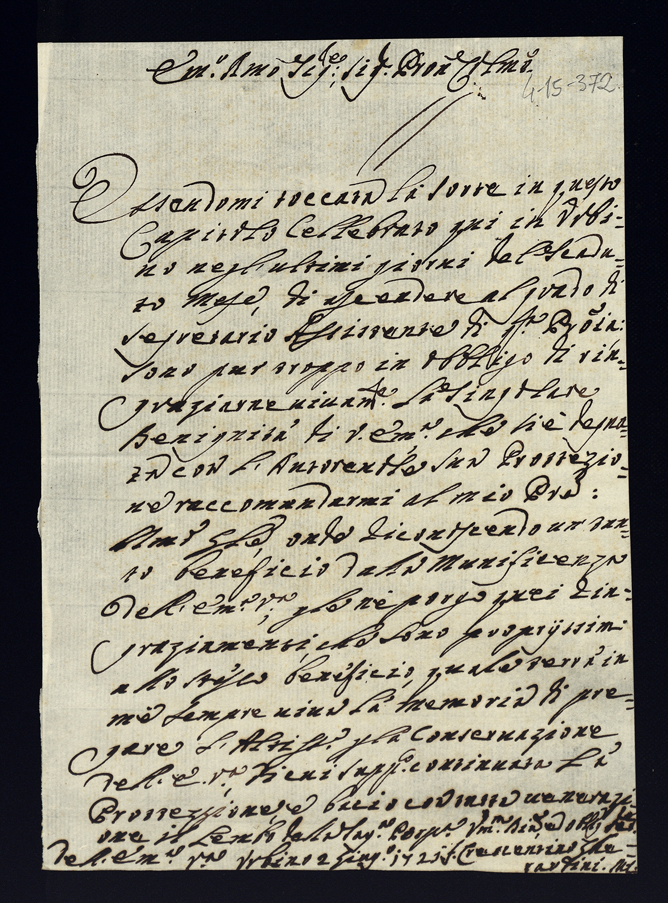 Em.º Rmo Sig.re, Sig. Pron Col.mo
4-15-372
Essendomi toccata la sorte in questo
Capitolo Cellebrato qui in Vrbi-
no negl'ultimi giorni del scadu-
to Mese, di ascendere al grado di
Segretario Assistente di sta Proīa:
sono pur troppo in obbligo di rin-
graziarne vivamte la singolare
Benignità di V. Em.a che si è degna-
ta con l'Autorevole sua Protezio-
ne raccomandarmi al mio Pre
Rmo Gle, onde riconoscendo un tan-
to beneficio dalla Munificenza
dell'Em.a V.ra, gle ne porgo quei Rin-
graziamenti, che sono proprijssimi
allo stesso beneficio, quale terrà in
me sempre viva la memoria di pre-
gare l'Altis.o p la Conservazione
dell'E. V.ra. Vieni supp. continuata la
Protezzione, e bacio con tutta venerazi-
one il Lembo della Sag. Porpa. Vm.o Div.o e obblig.
dell'Em.a V.ra Vrbino 2 Giug. 1723 f. Crescentino